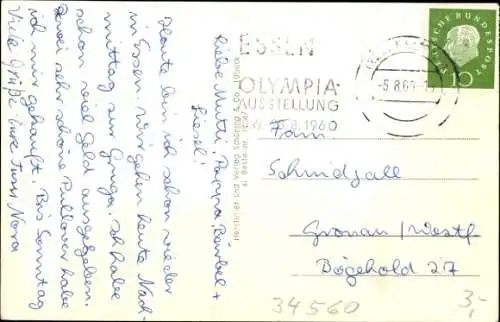 Liebe Mutti, Pappa, Bärbel +
Liesel!
Heute bin ich schon wieder
in Essen. Wir gehen heute Nach-
mittag zur Gruga. Ich habe
schon viel Geld ausgegeben.
Zwei sehr schöne Pullover habe
ich mir gekauft. Bis Sonntag
Viele Grüße Eure Nora
ESSEN
OLYMPIA-
AUSSTELLUNG
8.1960
-5.8.60
DEUTSCHE BUNDESPOST
10
Fam.
Schmidjall
Gronau / Westf
Dögehold 27
34560
3,-